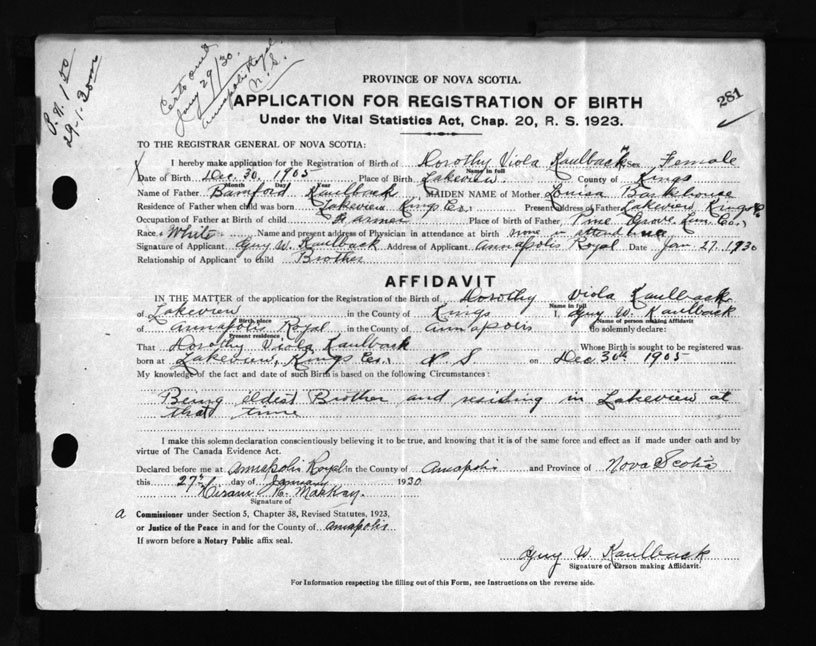 P.N. 1.50
29.1.30
Certs out
Jany 29/30.
Annapolis Royal.
N.S.
281
PROVINCE OF NOVA SCOTIA.
APPLICATION FOR REGISTRATION OF BIRTH
Under the Vital Statistics Act, Chap. 20, R. S. 1923.
TO THE REGISTRAR GENERAL OF NOVA SCOTIA:
I hereby make application for the Registration of Birth of Dorothy Viola Kaulback Sex Female
Name in full
Date of Birth Dec. 30. 1905 Place of Birth Lakeview County of Kings
Month Day Year
Name of Father Bamford Kaulback MAIDEN NAME of Mother Louisa Barkhouse
Residence of Father when child was born Lakeview Kings Co. Present address of Father Lakeview Kings Co
Occupation of Father at Birth of child Farmer Place of birth of Father, Pine Grove Lun. Co.
Race White Name and present address of Physician in attendance at birth none in attendance
Signature of Applicant Guy W. Kaulback Address of Applicant Annapolis Royal Date Jan. 27. 1930
Relationship of Applicant to child Brother
AFFIDAVIT
IN THE MATTER of the application for the Registration of the Birth of Dorothy Viola Kaulback
Name in full
of Lakeview in the County of Kings I, Guy W. Kaulback
Birth place Name of person making Affidavit
of Annapolis Royal in the County of Annapolis do solemnly declare:
Present residence
That Dorothy Viola Kaulback Whose Birth is sought to be registered was
born at Lakeview, Kings Co. N S on Dec 30th 1905
My knowledge of the fact and date of such Birth is based on the following Circumstances:
Being eldest Brother and residing in Lakeview at
that time
I make this solemn declaration conscientiously believing it to be true, and knowing that it is of the same force and effect as if made under oath and by
virtue of The Canada Evidence Act.
Declared before me at Annapolis Royal in the County of Annapolis and Province of Nova Scotia
this 27th day of January 1930
Hiram R. MacKay.
Signature of
a Commissioner under Section 5, Chapter 38, Revised Statutes, 1923,
or Justice of the Peace in and for the County of Annapolis
If sworn before a Notary Public affix seal.
Guy W. Kaulback
Signature of Person making Affidavit.
For Information respecting the filling out of this Form, see Instructions on the reverse side.